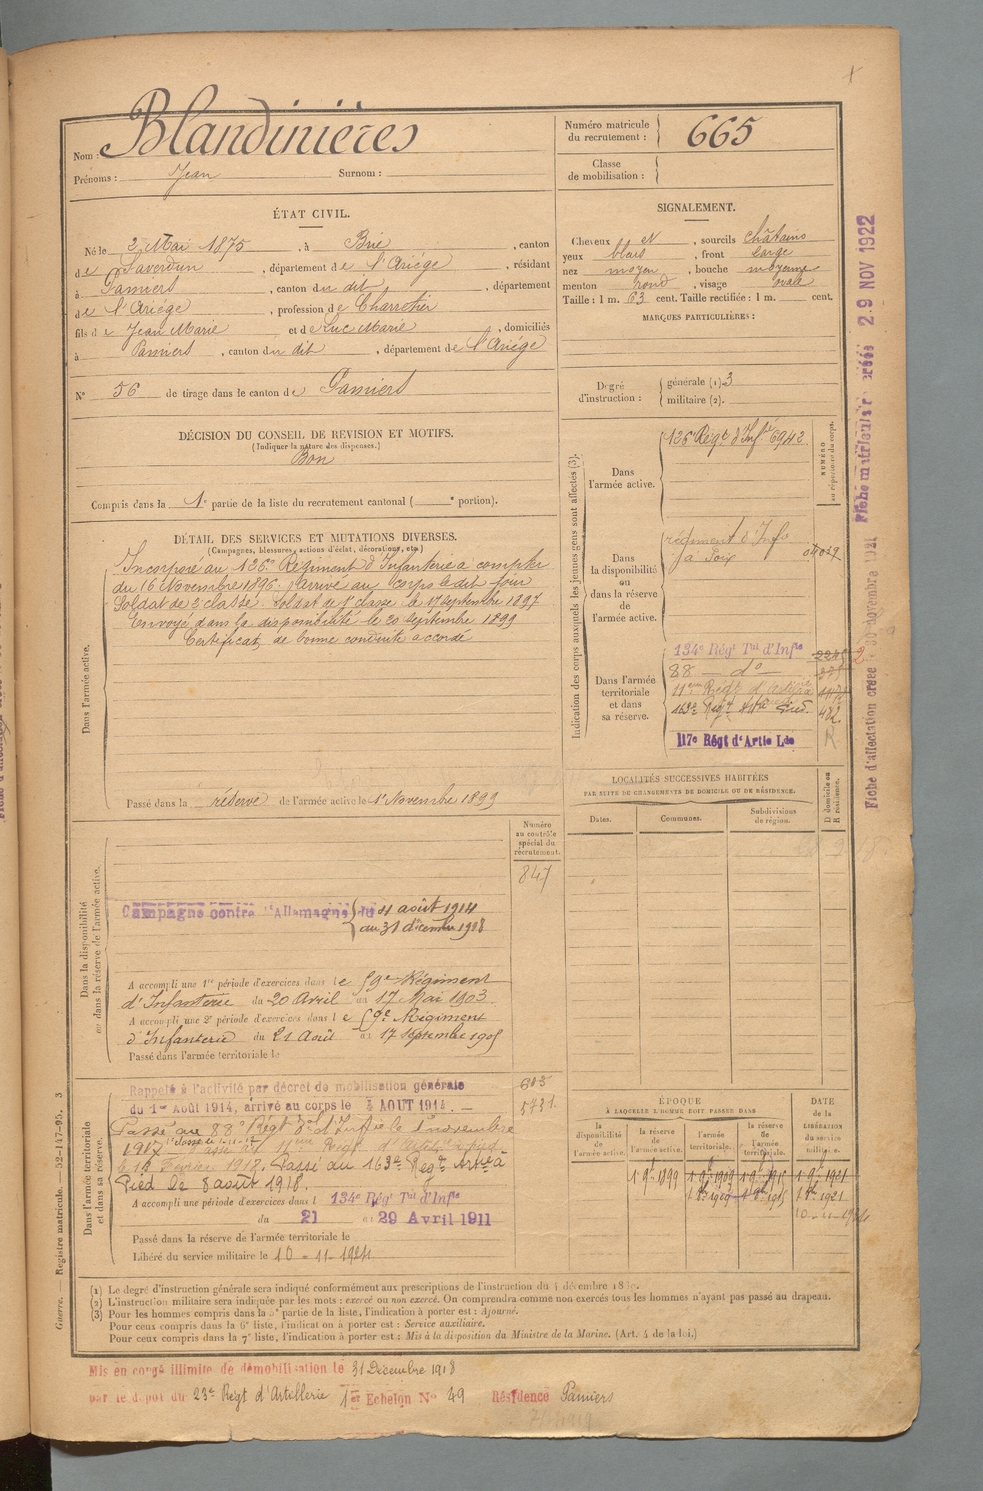 Nom : Blandinières
Prénoms : Jean Surnom :
Numéro matricule du recrutement : 665
Classe de mobilisation :
ÉTAT CIVIL.
Né le 2 Mai 1875, à Brie, canton
de Saverdun, département de l'Ariège, résidant
à Pamiers, canton du dit, département
de l'Ariège, profession de Charretier
fils de Jean Marie et de Luc Marie, domiciliés
à Pamiers, canton du dit, département de l'Ariège
N° 56 de tirage dans le canton de Pamiers
SIGNALEMENT.
Cheveux et, sourcils châtains
yeux bleus, front large
nez moyen, bouche moyenne
menton rond, visage ovale
Taille : 1 m. 63 cent. Taille rectifiée : 1 m. cent.
MARQUES PARTICULIÈRES :
Degré d'instruction : générale (1) 3
militaire (2).
DÉCISION DU CONSEIL DE REVISION ET MOTIFS.
(Indiquer la nature des dispenses.)
Bon
Compris dans la 1e partie de la liste du recrutement cantonal ( e portion).
DÉTAIL DES SERVICES ET MUTATIONS DIVERSES.
(Campagnes, blessures, actions d'éclat, décorations, etc.)
Dans l'armée active.
Incorporé au 126e Régiment d'Infanterie à compter
du 16 Novembre 1896. Arrivé au corps le dit jour
Soldat de 2e classe. Soldat de 1e classe le 17 septembre 1897
Envoyé dans la disponibilité le 20 septembre 1899
Certificat de bonne conduite accordé
Passé dans la réserve de l'armée active le 1er Novembre 1899
Indication des corps auxquels les jeunes gens sont affectés (3).
NUMÉRO au répertoire du corps.
Dans l'armée active.
126 Régt d'Infie 6942
Dans la disponibilité ou dans la réserve de l'armée active.
régiment d'Inf
à Foix
Dans l'armée territoriale et dans sa réserve.
134e Régt Tal d'Infie
88 do
11eme Régt d'Artie à
163e Régt Artie Pied. 482
117e Régt d'Artie Lde R
LOCALITÉS SUCCESSIVES HABITÉES
PAR SUITE DE CHANGEMENTS DE DOMICILE OU DE RÉSIDENCE.
Dates. Communes. Subdivisions de région. D domicile ou R résidence.
Numéro au contrôle spécial du recrutement.
847
Dans la disponibilité ou dans la réserve de l'armée active.
Campagne contre l'Allemagne du 4 août 1914
au 31 décembre 1918
A accompli une 1re période d'exercices dans le 59e Régiment
d'Infanterie du 20 Avril au 17 Mai 1903.
A accompli une 2e période d'exercices dans le 59e Régiment
d'Infanterie du 21 Août au 17 septembre 1905
Passé dans l'armée territoriale le
Dans l'armée territoriale et dans sa réserve.
Rappelé à l'activité par décret de mobilisation générale
du 1er Août 1914, arrivé au corps le AOUT 1914.
5731.
Passé au 88e Régt Tal d'Infie le 1 novembre
1917
le 15 Février 1918. Passé au 163e Régt Artie à
Pied le 8 août 1918.
A accompli une période d'exercices dans l 134e Régt Tal d'Infie
du 21 au 29 Avril 1911
Passé dans la réserve de l'armée territoriale le
Libéré du service militaire le 10 - 11 - 1924
ÉPOQUE À LAQUELLE L'HOMME DOIT PASSER DANS
la disponibilité de l'armée active. la réserve de l'armée active. l'armée territoriale. la réserve de l'armée territoriale.
DATE de la LIBÉRATION du service militaire.
1 9e 1899 1 9e 1909 1 9e 1915 1 9e 1921
1 8e 1909 1 8e 1915 1 8e 1921
10-11-1924
(1) Le degré d'instruction générale sera indiqué conformément aux prescriptions de l'instruction du 4 décembre 18
(2) L'instruction militaire sera indiquée par les mots : exercé ou non exercé. On comprendra comme non exercés tous les hommes n'ayant pas passé au drapeau.
(3) Pour les hommes compris dans la 5e partie de la liste, l'indication à porter est : Ajourné.
Pour ceux compris dans la 6e liste, l'indication à porter est : Service auxiliaire.
Pour ceux compris dans la 7e liste, l'indication à porter est : Mis à la disposition du Ministre de la Marine. (Art. 4 de la loi.)
Mis en congé illimité de démobilisation le 31 Décembre 1918
par le dépôt du 23e Régt d'Artillerie 1er Echelon N° 49 Résidence Pamiers
Guerre. — Registre matricule. — 52-147-95. 3
Fiche matriculaire créée 29 NOV 1922
Fiche d'affectation créée novembre 1921